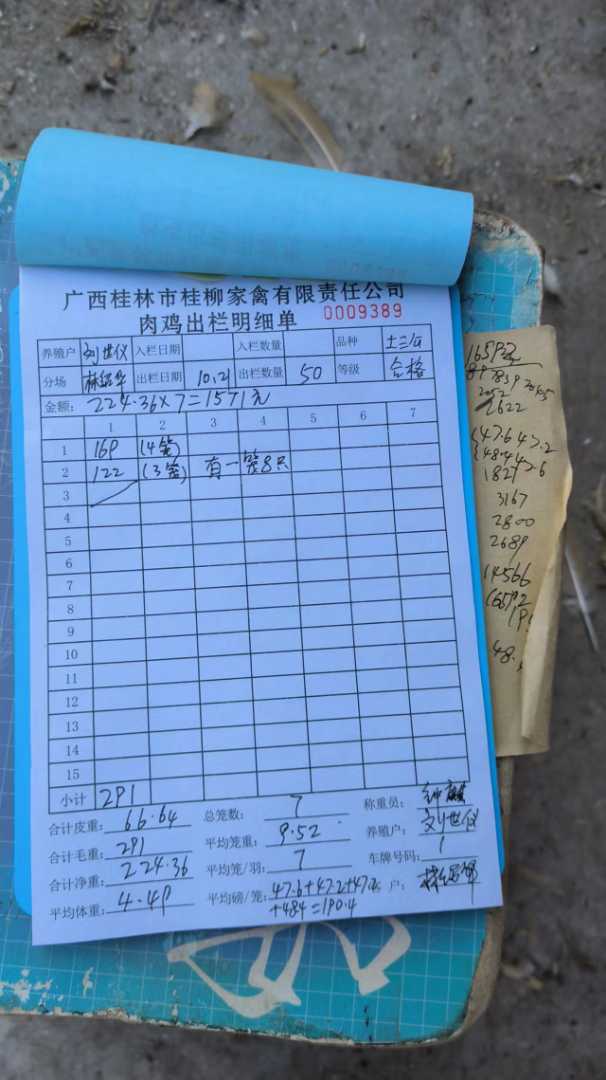 广西桂林市桂柳家禽有限责任公司
肉鸡出栏明细单 0009389
养殖户 刘世仪 入栏日期 入栏数量 品种 土三/a
分场 出栏日期 10.21 出栏数量 50 等级 合格
金额: 224.36×7=1571元
1 2 3 4 5 6 7
1 169 (4笼)
2 122 (3笼) 有一笼8只
3
4
5
6
7
8
9
10
11
12
13
14
15
小计 291
合计皮重: 66.64 总笼数: 7 称重员:
合计毛重: 291 平均笼重: 9.52 养殖户: 刘世仪
合计净重: 224.36 平均笼/羽: 7 车牌号码: 1
平均体重: 4.49 平均磅/笼: 47.6+47.2+47.2 户:
+48.4=190.4
2622
47.6 47.2
48.4 47.6
1821
3167
2800
2689
14566